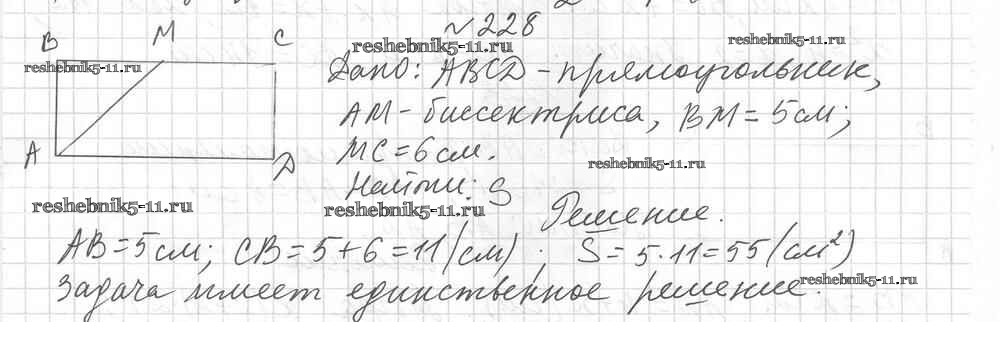 №228
B M C
reshebnik5-11.ru
reshebnik5-11.ru
reshebnik5-11.ru
Дано: ABCD - прямоугольник,
AM - биссектриса, BM = 5 см;
A
MC = 6 см.
D
reshebnik5-11.ru
Найти: S
reshebnik5-11.ru
reshebnik5-11.ru
Решение.
AB = 5 см; CB = 5 + 6 = 11 (см); S = 5 · 11 = 55 (см²)
Задача имеет единственное решение.
reshebnik5-11.ru